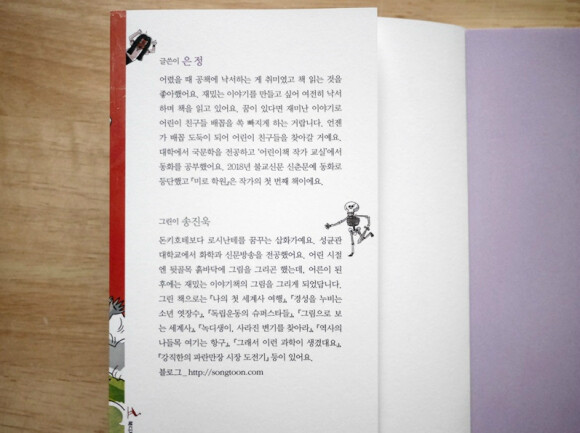 글쓴이 은정
어렸을 때 공책에 낙서하는 게 취미였고 책 읽는 것을
좋아했어요. 재밌는 이야기를 만들고 싶어 여전히 낙서
하며 책을 읽고 있어요. 꿈이 있다면 재미난 이야기로
어린이 친구들 배꼽을 쏙 빠지게 하는 거랍니다. 언젠
가 배꼽 도둑이 되어 어린이 친구들을 찾아갈 거예요.
대학에서 국문학을 전공하고 '어린이책 작가 교실'에서
동화를 공부했어요. 2018년 불교신문 신춘문예 동화로
등단했고 『미로 학원』은 작가의 첫 번째 책이에요.
그린이 송진욱
돈키호테보다 로시난테를 꿈꾸는 삽화가예요. 성균관
대학교에서 화학과 신문방송을 전공했어요. 어린 시절
엔 뒷골목 흙바닥에 그림을 그리곤 했는데, 어른이 된
후에는 재밌는 이야기책의 그림을 그리게 되었답니다.
그린 책으로는 『나의 첫 세계사 여행』, 『경성을 누비는
소년 엿장수』, 『독립운동의 슈퍼스타들』, 『그림으로 보
는 세계사』, 『녹디생이, 사라진 변기를 찾아라』, 『역사의
나들목 여기는 항구』, 『그래서 이런 과학이 생겼대요』,
『강직한의 파란만장 시장 도전기』 등이 있어요.
블로그_ http://songtoon.com